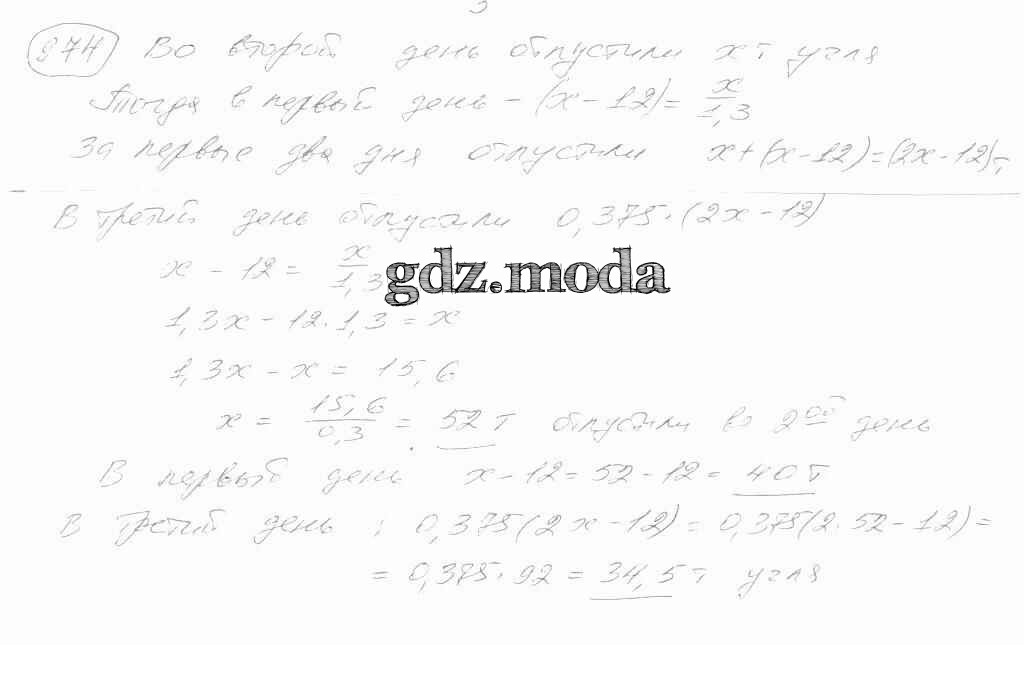 874 Во второй день отпустили x т угля
Тогда в первый день - (x - 12) = x/1,3
За первые два дня отпустили x + (x - 12) = (2x - 12) т
В третий день отпустили 0,375 · (2x - 12)
x - 12 = x/1,3
gdz.moda
1,3x - 12 · 1,3 = x
1,3x - x = 15,6
x = 15,6/0,3 = 52 т отпустили во 2ой день
В первый день x - 12 = 52 - 12 = 40 т
В третий день : 0,375(2x - 12) = 0,375(2 · 52 - 12) =
= 0,375 · 92 = 34,5 т угля